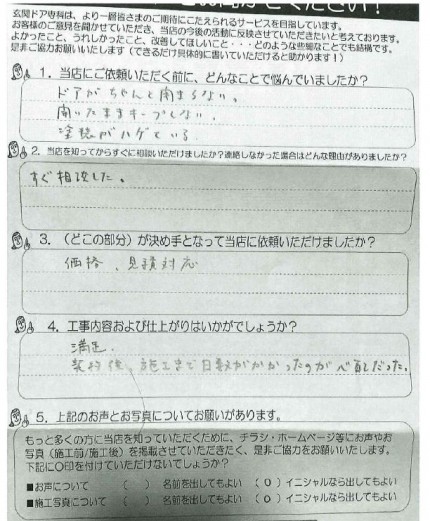 ください！
玄関ドア専科は、より一層皆さまのご期待にこたえられるサービスを目指しています。
お客様のご意見を聞かせていただき、当店の今後の活動に反映させていただきたいと考えております。
よかったこと、うれしかったこと、改善してほしいこと・・・どのような些細なことでも結構です。
是非ご協力お願いいたします（できるだけ具体的に書いていただけると助かります！）
1. 当店にご依頼いただく前に、どんなことで悩んでいましたか？
ドアがちゃんと閉まらない。
開いたままキープしない。
塗装がハゲている。
2. 当店を知ってからすぐに相談いただけましたか？連絡しなかった場合はどんな理由がありましたか？
すぐ相談した。
3. （どこの部分）が決め手となって当店に依頼いただけましたか？
価格、見積対応
4. 工事内容および仕上がりはいかがでしょうか？
満足。
契約後、施工まで日数がかかったのが だった。
5. 上記のお声とお写真についてお願いがあります。
もっと多くの方に当店を知っていただくために、チラシ・ホームページ等にお声やお
写真（施工前/施工後）を掲載させていただきたく、是非ご協力をお願いいたします。
下記に○印を付けていただけないでしょうか？
■お声について （ ） 名前を出してもよい （○）イニシャルなら出してもよい
■施工写真について （ ） 名前を出してもよい （○）イニシャルなら出してもよい